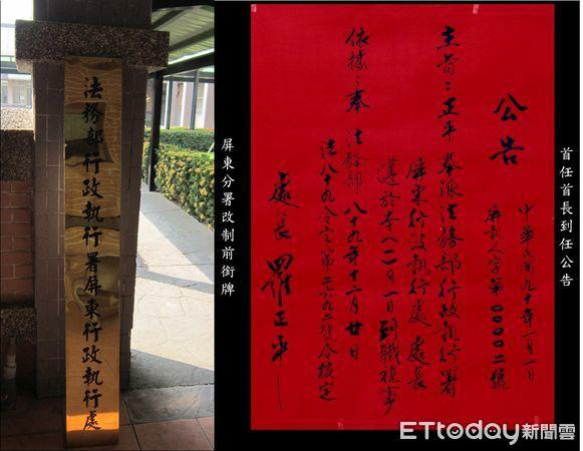 法務部行政執行署屏東行政執行處
屏東分署改制前銜牌
首任首長到任公告
中華民國九十年一月一日
屏執人字第00002號
公告
主旨：正平奉派法務部行政執行署
屏東行政執行處處長
遵於本(一)月一日到職視事
依據：奉法務部八十九年十二月廿日
法八十九令字第號令核定
處長 羅正平
ETtoday新聞雲